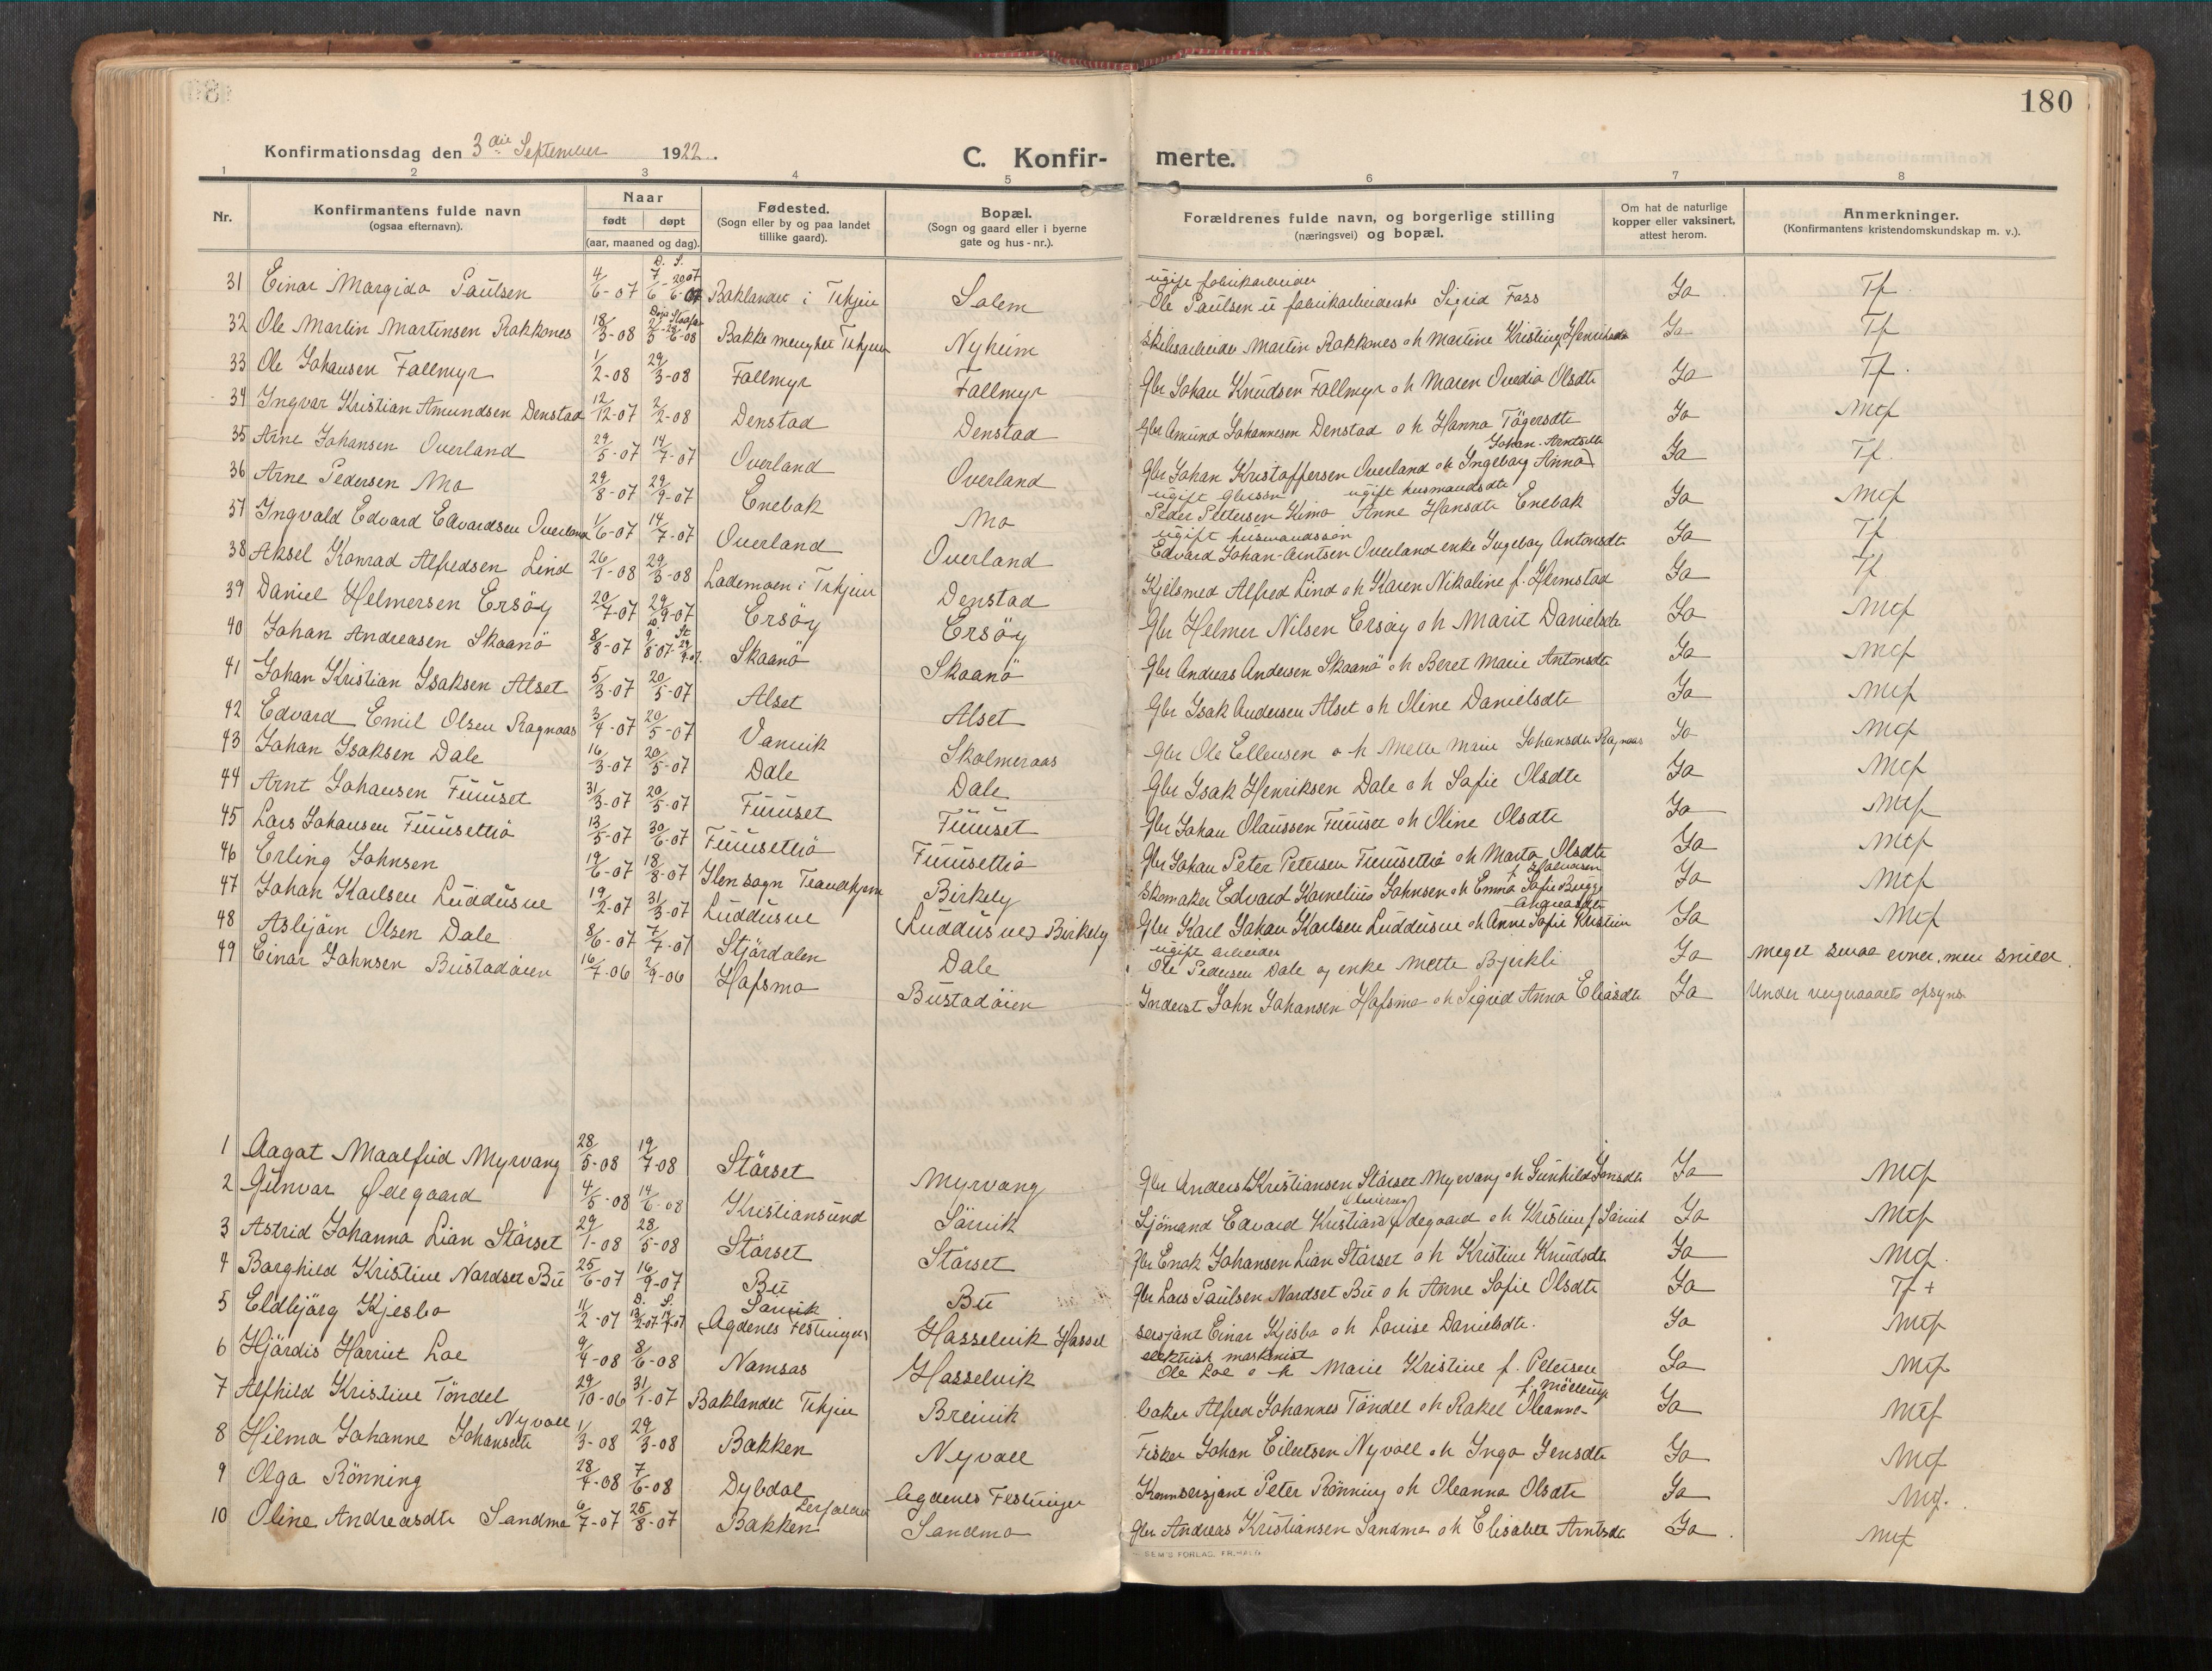 180
Konfirmationsdag den 3die September 1922.
C. Konfir- merte.
1 2 3 4 5 6 7 8
Nr.
Konfirmantens fulde navn
(ogsaa efternavn).
Naar
født døpt
(aar, maaned og dag).
Fødested.
(Sogn eller by og paa landet
tillike gaard).
Bopæl.
(Sogn og gaard eller i byerne
gate og hus-nr.).
Forældrenes fulde navn, og borgerlige stilling
(næringsvei) og bopæl.
Om hat de naturlige
kopper eller vaksinert,
attest herom.
Anmerkninger.
(Konfirmantens kristendomskundskap m. v.).
31 Einar Margido Paulsen 4/6-07 D. 7/6 S. 20/6-07 Baklandet i Trhjem Solem ugift fabrikarbeider Ole Paulsen u fabrikarbeiderske Sigrid Foss Ja Tf.
32 Ole Martin Martinsen Rokkones 18/3-08 28/6-08 Bakke menighet Trhjem Nyheim Martin Rokkones o h Martine Kristine Henriksdt Ja Tf
33 Ole Johansen Fallmyr 1/2-08 29/3-08 Fallmyr Fallmyr Gbr Johan Knudsen Fallmyr o h Maren Ovedia Olsdtr Ja Tf.
34 Ingvar Kristian Amundsen Denstad 12/12-07 2/2-08 Denstad Denstad Gbr Amund Johannesen Denstad o h Hanna Tøgersdtr Ja Mtf
35 Arne Johansen Overland 29/5-07 14/7-07 Overland Overland Gbr Johan Kristoffersen Overland o h Ingeborg Anna Johan-Arntsdtr Ja Tf.
36 Arne Pedersen Mo 29/8-07 29/9-07 Enebak Mo ugift gbrsøn Peder Pettersen Kimo ugift husmandsdtr Anne Hansdtr Enebak Ja Mtf
37 Ingvald Edvard Edvardsen Overland 1/6-07 14/7-07 Overland Overland ugift husmandssøn Edvard Johan-Arntsen Overland enke Ingeborg Antonsdtr Ja Tf
38 Aksel Konrad Alfredsen Lind 26/1-08 29/3-08 Lademoen i Trhjem Denstad Kjelsmed Alfred Lind o h Karen Nikoline f. Hermstad Ja Tf
39 Daniel Helmersen Ersøy 20/7-07 29/9-07 Ersøy Ersøy Gbr Helmer Nilsen Ersøy o h Marit Danielsdtr Ja Mtf
40 Johan Andreasen Skaanö 8/8-07 D. 9/8-07 St 29/9-07 Skaanö Skaanö Gbr Andreas Andersen Skaanö o h Beret Marie Antonsdtr Ja Mtf
41 Johan Kristian Isaksen Alset 5/3-07 20/5-07 Alset Alset Gbr Isak Andersen Alset o h Oline Danielsdtr Ja Mtf
42 Edvard Emil Olsen Ragnaas 3/4-07 20/5-07 Vanvik Skolmeraas Gbr Ole Ellensen o h Mette Marie Johansdtr Ragnaas Ja Mtf
43 Johan Isaksen Dale 16/3-07 20/5-07 Dale Dale Gbr Isak Henriksen Dale o h Sofie Olsdtr Ja Mtf
44 Arnt Johansen Fuuset 31/3-07 20/5-07 Fuuset Fuuset Gbr Johan Olaussen Fuuset o h Oline Olsdtr Ja Mtf
45 Lars Johansen Fuusettrö 13/5-07 30/6-07 Fuusettrö Fuusettrö Gbr Johan Peter Petersen Fuusettrö o h Marta Olsdtr Ja Mtf
46 Erling Johnsen 19/6-07 18/8-07 Ilen sogn Trondhjem Birkely Skomaker Edvard Kornelius Johnsen o h Emma Sofie Bugge Ja Mtf
47 Johan Karlsen Luddusve 19/2-07 31/3-07 Luddusve (Luddusve) Birkely Gbr Karl Johan Karlsen Luddusve o h Anne Sofie Kristine Andreasdtr Ja Mtf
48 Asbjørn Olsen Dale 8/6-07 7/7-07 Stjördalen Dale ugift arbeider Ole Pedersen Dale og enke Mette Bjerkli Ja Meget smaa evner, men snild.
49 Einar Johnsen Bustadöien 16/7-06 2/9-06 Hofsmo Bustadöien Inderst John Johansen Hofsmo o h Sigrid Anna Eliasdtr Ja Under vergeraadets opsyn
1 Aagot Maalfrid Myrvang 28/5-08 19/7-08 Störset Myrvang Gbr Anders Kristiansen Störset Myrvang o h Gunhild Jonsdtr Ja Mtf
2 Gunvor Ødegaard 4/5-08 14/6-08 Kristiansund Sörvik Sjömand Edvard Kristian Ødegaard o h Kristine f Sörvik Ja Mtf
3 Astrid Johanna Lian Störset 29/1-08 28/5-08 Störset Störset Gbr Enok Johansen Lian Störset o h Kristine Knudsdtr Ja Mtf.
4 Borghild Kristine Nordset Bü 25/6-07 16/9-07 Bü Bü Gbr Lars Paulsen Nordset Bü o h Anne Sofie Olsdtr Ja Tf +
5 Eldbjörg Kjesbo 11/2-07 D. 13/2-07 S. 14/7-07 Sörvik (Agdenes Festninger) Hasselvik Hassel sersjant Einar Kjesbo o h Lovise Danielsdtr. Ja Mtf
6 Hjördis Harriet Loe 9/4-08 8/6-08 Namsos Hasselvik elektrisk maskinist Ole Loe o h Marie Kristine f. Petersen Ja Mtf
7 Alfhild Kristine Töndel 29/10-06 31/1-07 Baklandet Trhjem Breivik baker Alfred Johannes Töndel o h Rakel Oleanne f. Möllerup Ja Mtf
8 Hilma Johanne Johansdtr Nyvoll 1/3-08 29/3-08 Bakken Nyvoll Fisker Johan Eilertsen Nyvoll o h Inga Jensdtr Ja Mtf
9 Olga Rönning 28/4-08 7/6-08 Dybdal Agdenes Festninger Kommersjant Peter Rönning o h Oleanna Olsdtr Ja Mtf.
10 Oline Andreasdtr Sandmo 6/7-07 25/8-07 Bakken Sandmo Gbr Andreas Kristiansen Sandmo o h Elisabet Arntsdtr Ja Mtf
SEM'S FORLAG, FR.HALD